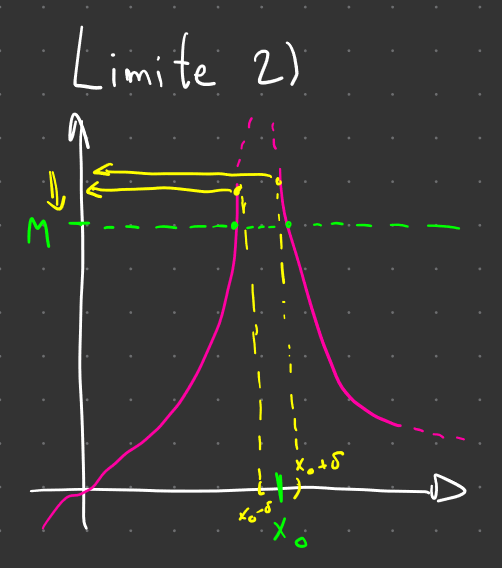 Limite 2)
M
x₀+δ
x₀-δ
x₀